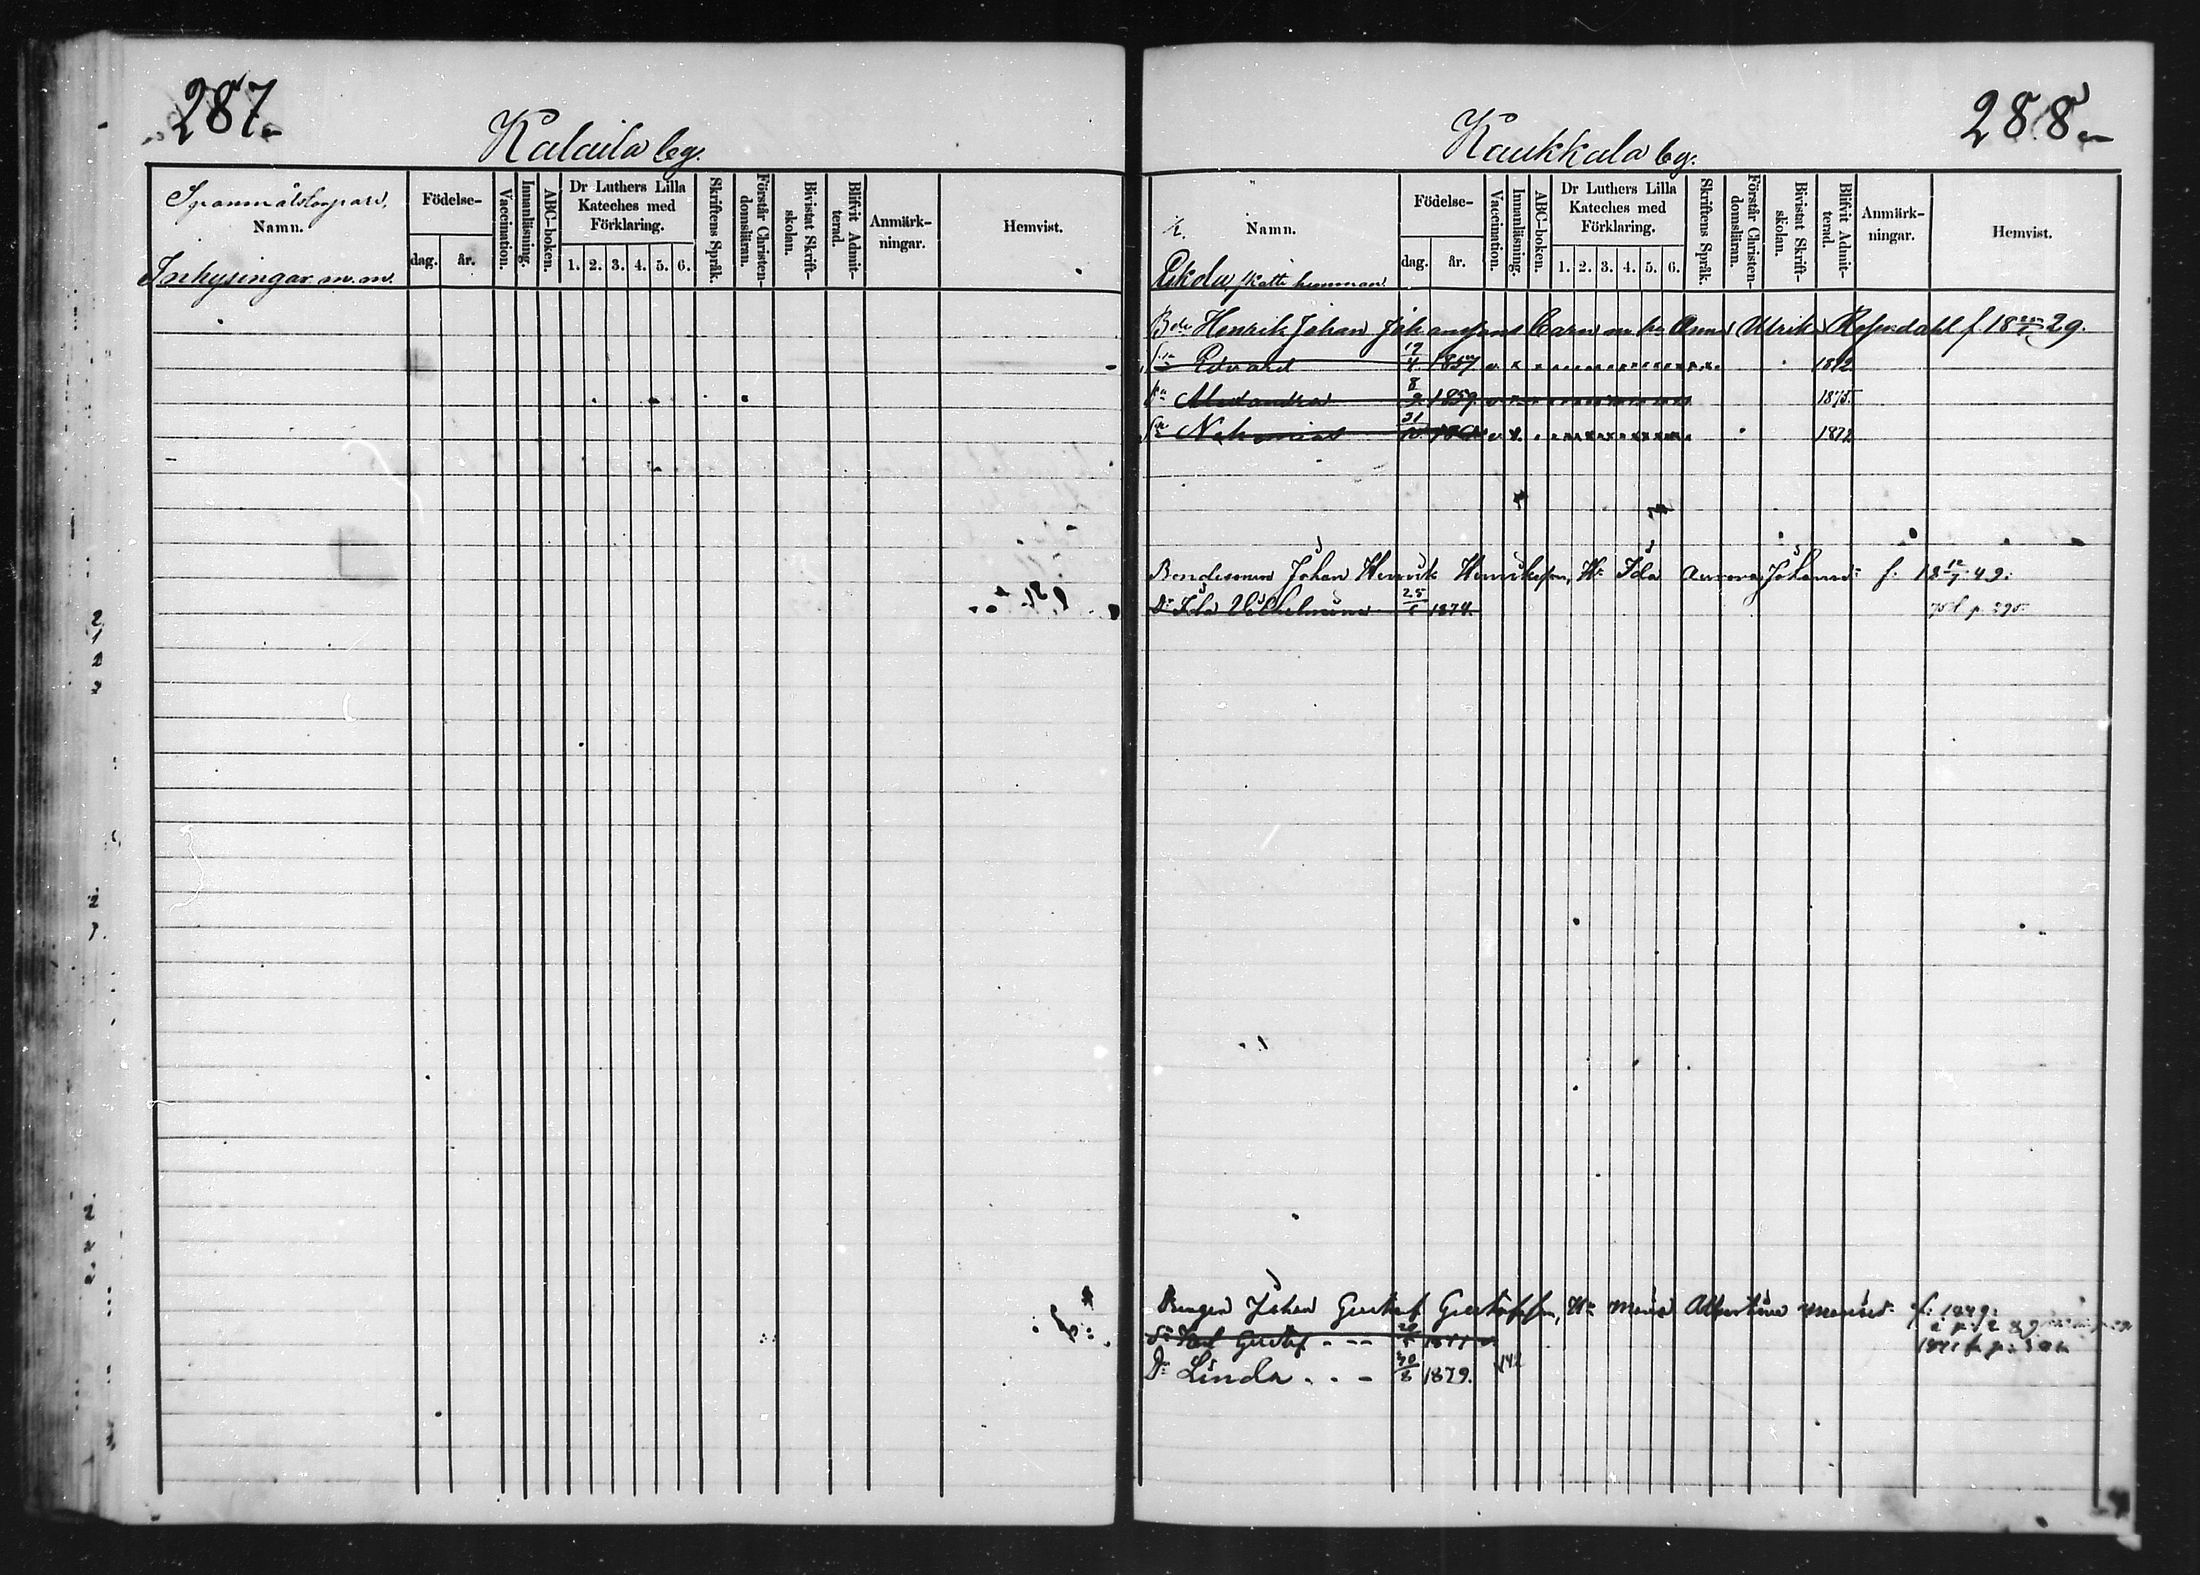 287.
Kalaila by.
Spannmålstorpare,
Namn.
Inhysingar m.m.
Födelse-
dag. år.
Vaccination.
Innanläsning.
ABC-boken.
Dr Luthers Lilla
Kateches med
Förklaring.
1. 2. 3. 4. 5. 6.
Skriftens Språk.
Förstår Christen-
domsläran.
Bivistat Skrift-
skolan.
Blifvit Admit-
terad.
Anmärk-
ningar.
Hemvist.
288.
Kaukkala by.
Namn.
skatte hemman
Födelse-
dag. år.
Vaccination.
Innanläsning.
ABC-boken.
Dr Luthers Lilla
Kateches med
Förklaring.
1. 2. 3. 4. 5. 6.
Skriftens Språk.
Förstår Christen-
domsläran.
Bivistat Skrift-
skolan.
Blifvit Admit-
terad.
Anmärk-
ningar.
Hemvist.
Henrik Johan Barn m. h. Anna Ulrika Rosendahl f. 18 29.
Edvard 1857 1872
Alexandra 8 1859 1875.
Nehemias 31 1872
Bondesonen Johan Henrik Henriksson, Hu Ida Aurora Johansd: f. 18 12/7 49.
Dr Ida Vilhelmina 25 1874. p. 290
Johan Gustaf Gustafsson, Hu Maria Albertina f. 1849.
Sn Karl Gustaf 1877
Dr Linda 30/8 1879.